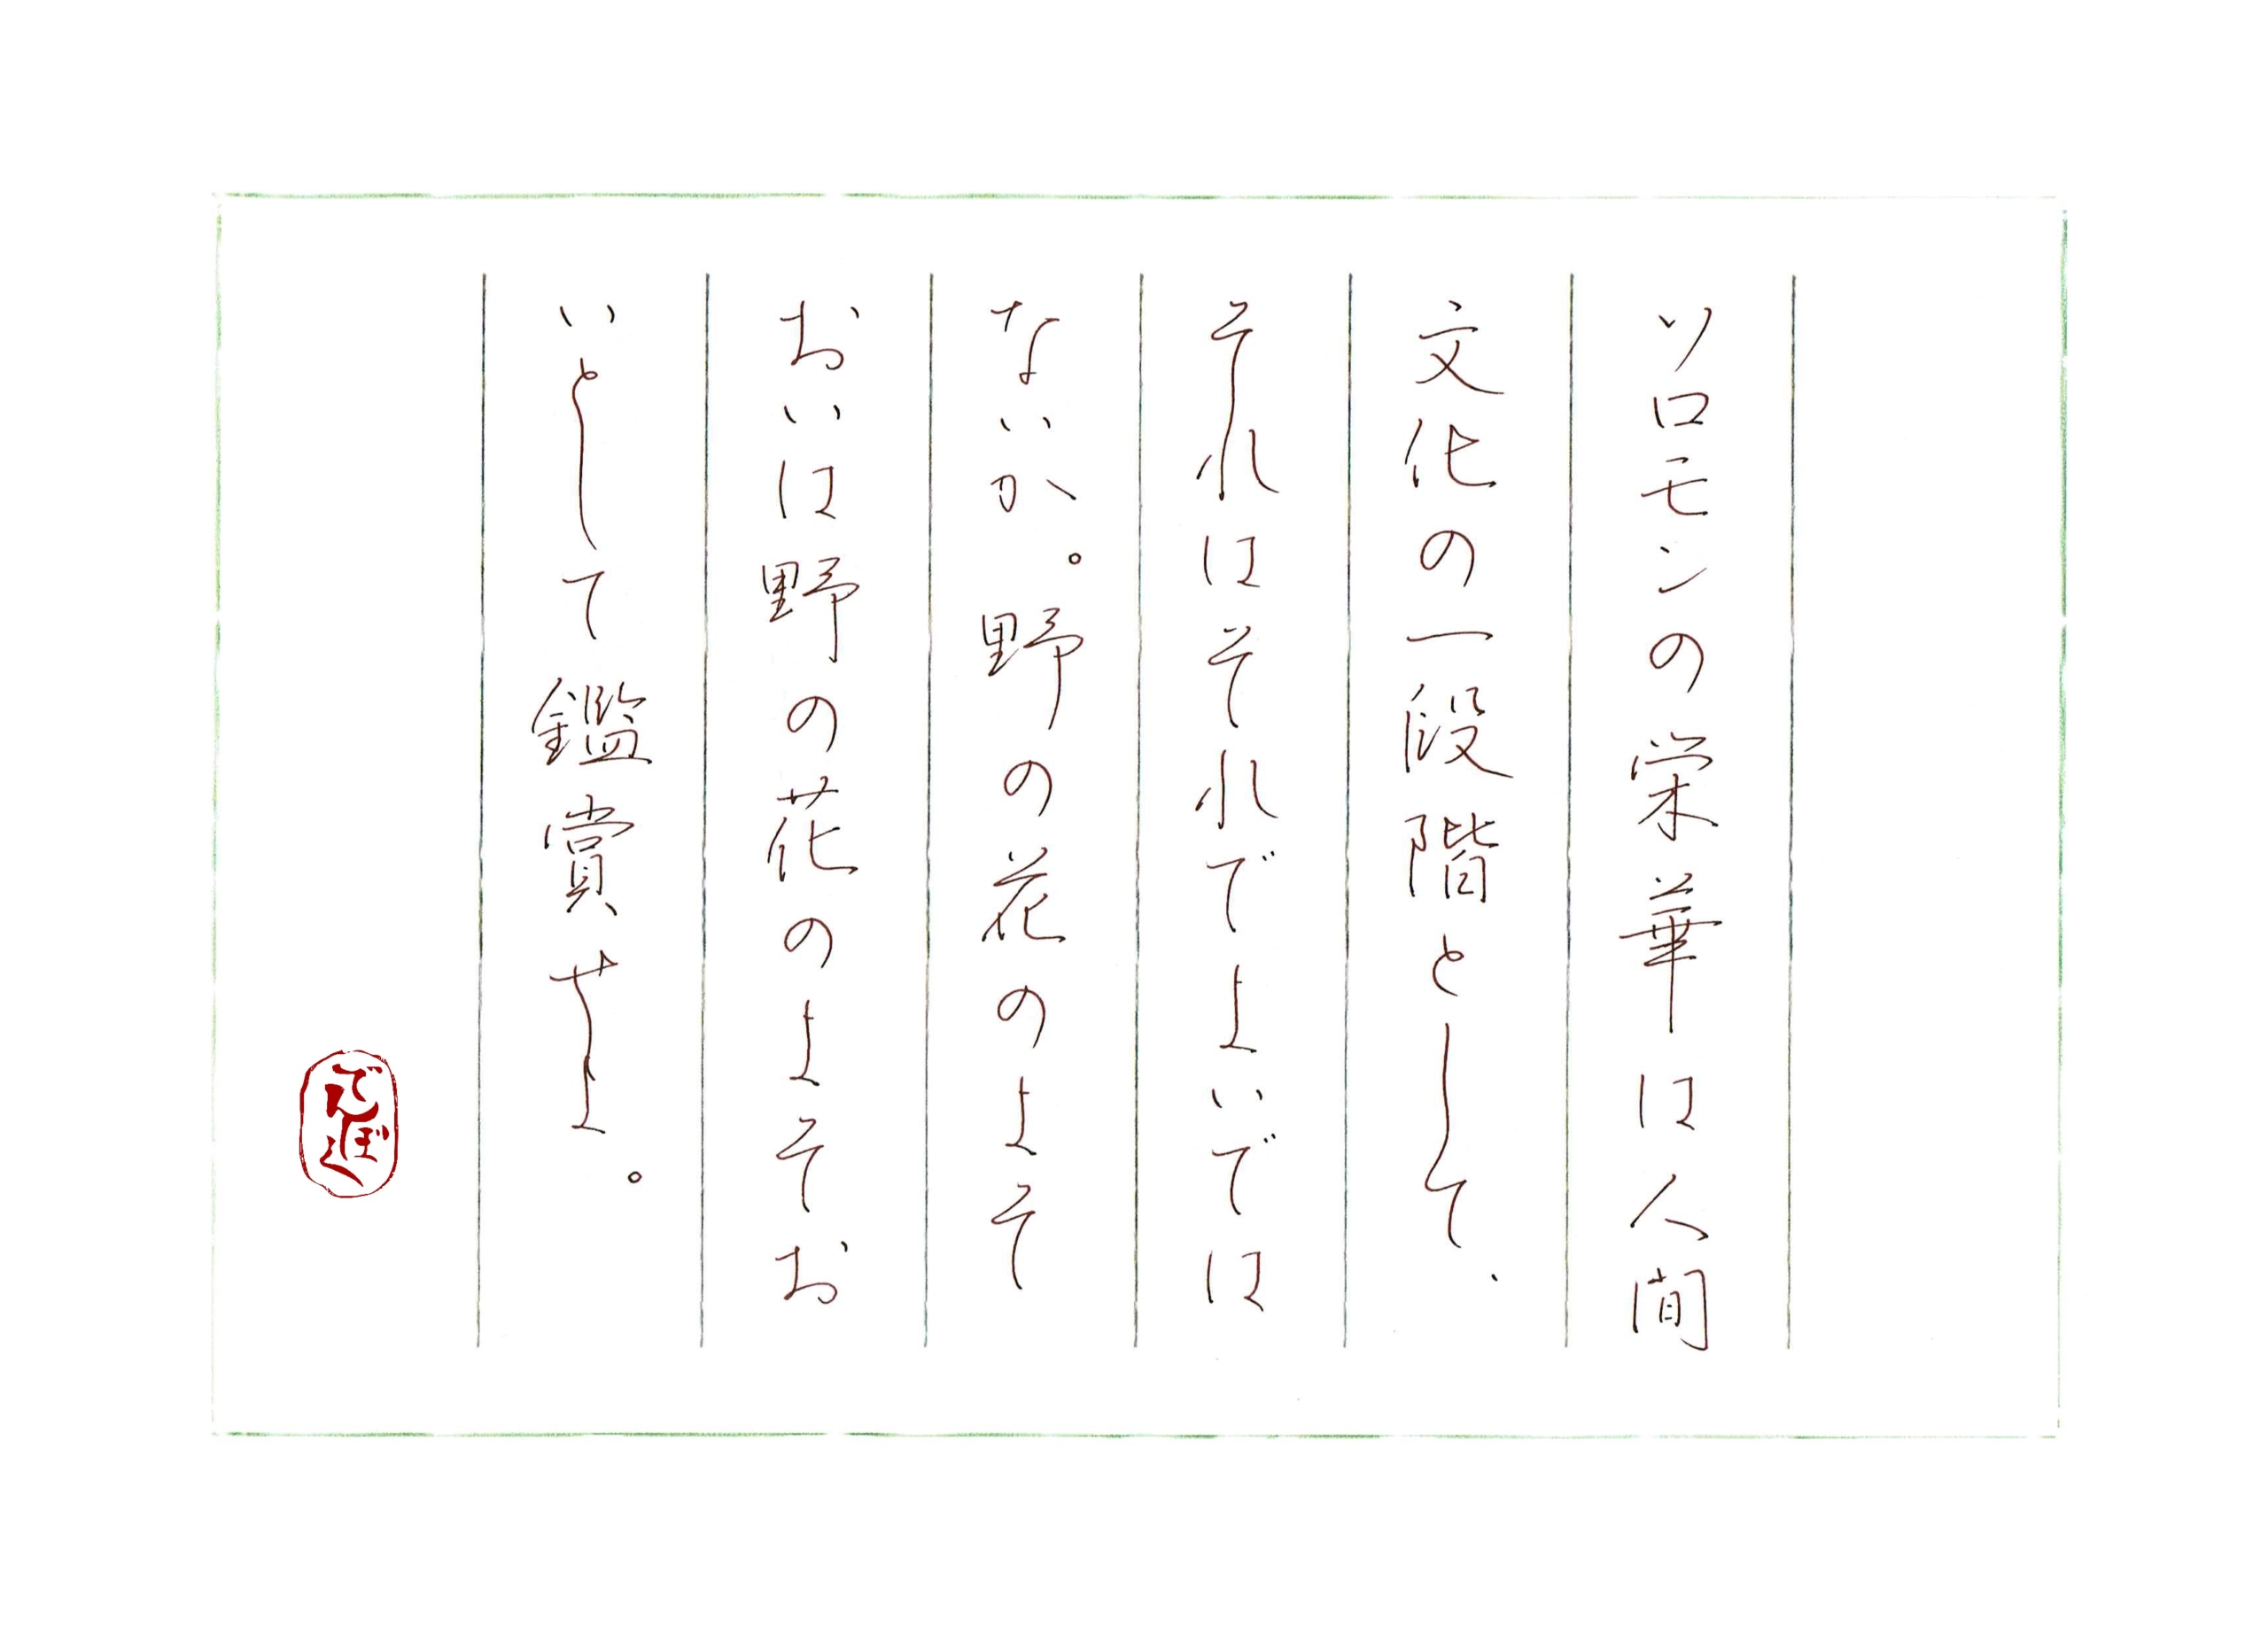 ソロモンの栄華は人間
文化の一段階として、
それはそれでよいでは
ないか。野の花のよそ
おいは野の花のよそお
いとして鑑賞せよ。
でんぼく